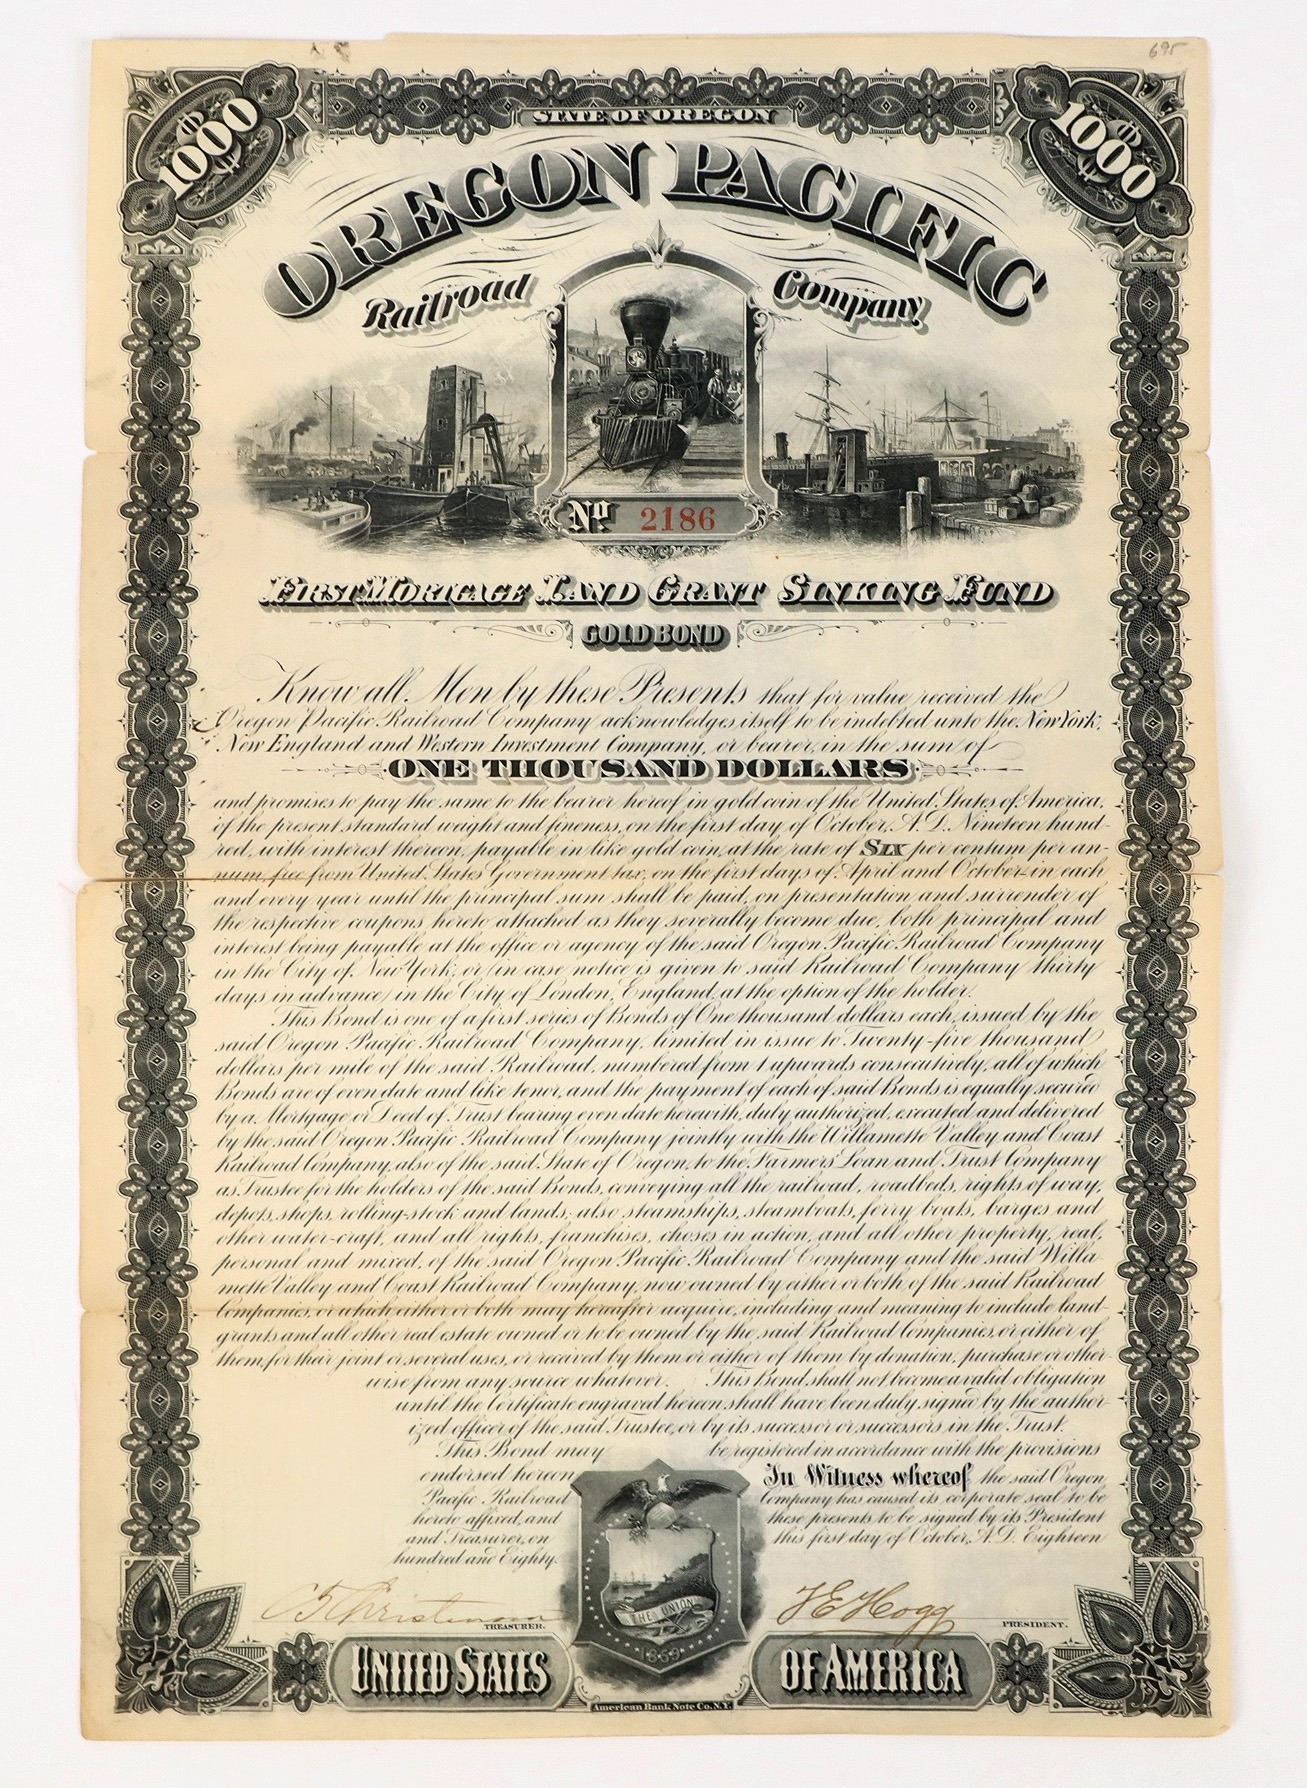 695
STATE OF OREGON
$1000
$1000
OREGON PACIFIC
Railroad Company
No 2186
FIRST MORTGAGE LAND GRANT SINKING FUND
GOLD BOND
Know all Men by these Presents that for value received the
Oregon Pacific Railroad Company acknowledges itself to be indebted unto the New York,
New England and Western Investment Company, or bearer, in the sum of
ONE THOUSAND DOLLARS
and promises to pay the same to the bearer hereof in gold coin of the United States of America,
of the present standard weight and fineness, on the first day of October, A.D. Nineteen hund-
red, with interest thereon, payable in like gold coin, at the rate of SIX per centum per an-
num, free from United States Government tax, on the first days of April and October in each
and every year until the principal sum shall be paid, on presentation and surrender of
the respective coupons hereto attached as they severally become due, both principal and
interest being payable at the office or agency of the said Oregon Pacific Railroad Company
in the City of New York, or (in case notice is given to said Railroad Company thirty
days in advance) in the City of London, England, at the option of the holder.
This Bond is one of a first series of Bonds of One thousand dollars each, issued by the
said Oregon Pacific Railroad Company, limited in issue to Twenty-five thousand
dollars per mile of the said Railroad, numbered from 1 upwards consecutively, all of which
Bonds are of even date and like tenor, and the payment of each of said Bonds is equally secured
by a Mortgage or Deed of Trust bearing even date herewith, duly authorized, executed and delivered
by the said Oregon Pacific Railroad Company jointly with the Willamette Valley and Coast
Railroad Company, also of the said State of Oregon, to the Farmers' Loan and Trust Company
as Trustee for the holders of the said Bonds, conveying all the railroad, roadbeds, rights of way,
depots, shops, rolling-stock and lands; also steamships, steamboats, ferry boats, barges and
other water-craft, and all rights, franchises, choses in action, and all other property, real,
personal and mixed, of the said Oregon Pacific Railroad Company and the said Willa-
mette Valley and Coast Railroad Company, now owned by either or both of the said Railroad
Companies, or which either or both may hereafter acquire, including and meaning to include land-
grants and all other real estate owned or to be owned by the said Railroad Companies, or either of
them, for their joint or several uses, or received by them or either of them by donation, purchase or other-
wise from any source whatever. This Bond shall not become a valid obligation
until the Certificate engraved hereon shall have been duly signed by the author-
ized officer of the said Trustee, or by its successor or successors in the Trust.
This Bond may be registered in accordance with the provisions
endorsed hereon In Witness whereof the said Oregon
Pacific Railroad Company has caused its corporate seal to be
hereto affixed, and these presents to be signed by its President
and Treasurer, on this first day of October, A.D. Eighteen
hundred and Eighty.
THE UNION
1859
TREASURER.
T E Hogg
PRESIDENT.
UNITED STATES OF AMERICA
American Bank Note Co. N.Y.